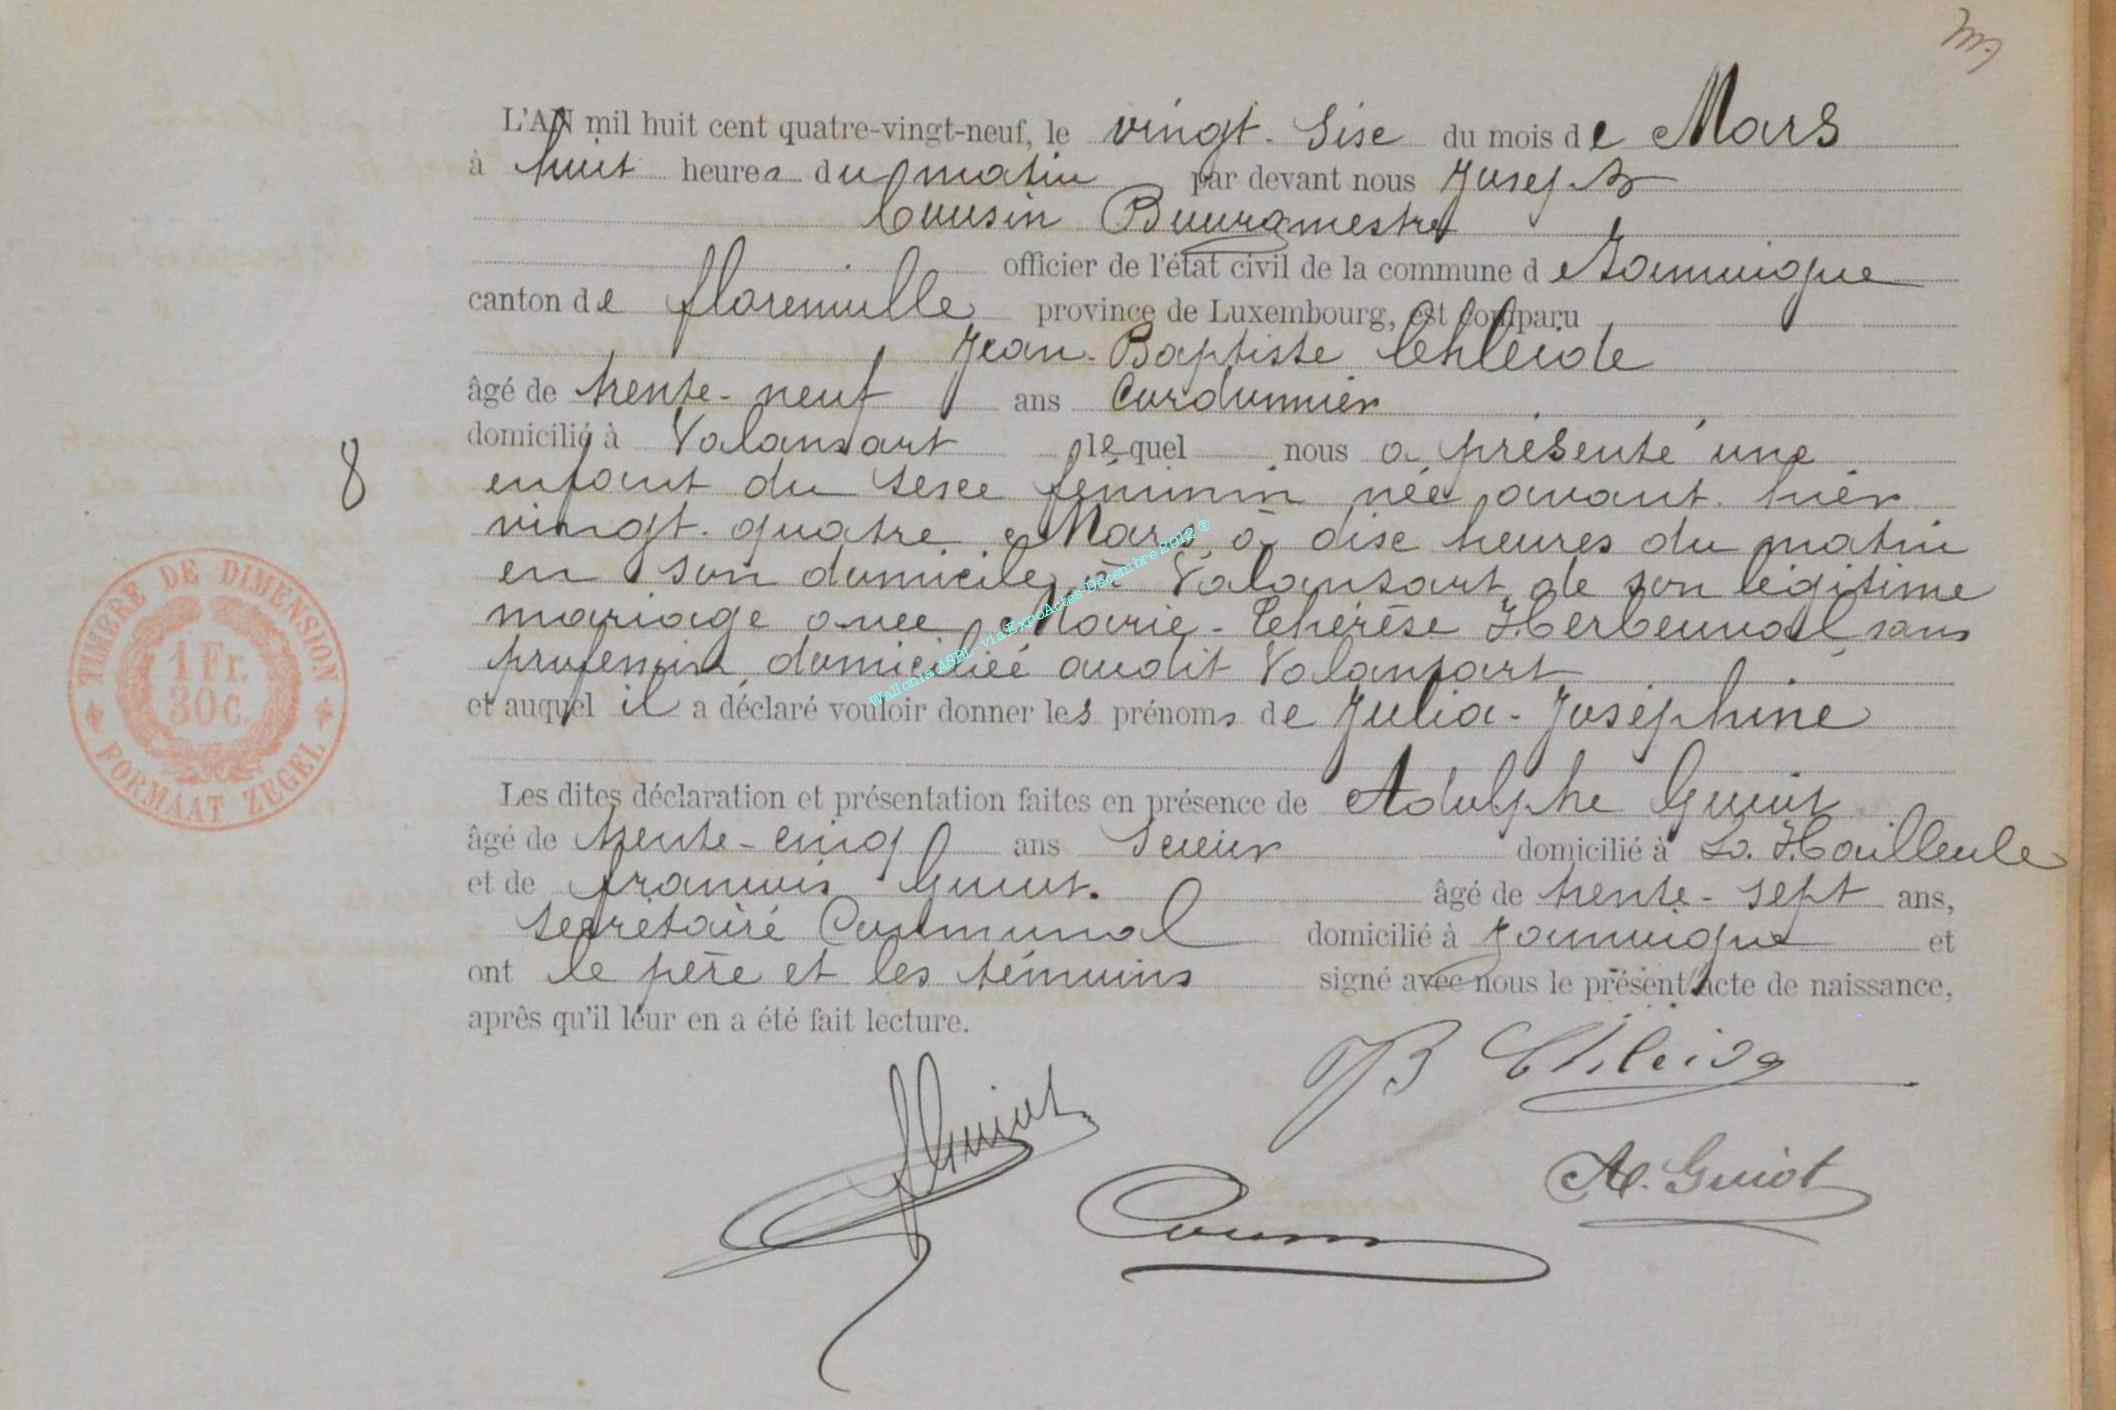 L'AN mil huit cent quatre-vingt-neuf, le vingt-sise du mois de Mars
à huit heures du matin par devant nous Joseph
Cousin Bourgmestre
officier de l'état civil de la commune d e Jamoigne
canton de florenville province de Luxembourg, est comparu
Jean-Baptiste Chleide
âgé de trente-neuf ans Cordonnier
domicilié à Valansart lequel nous a présenté une
8
enfant du sexe féminin née avant hier
vingt-quatre Mars, à dise heures du matin
en son domicile, à Valansart, de son légitime
mariage avec Marie-Thérèse Herbeuval, sans
profession, domiciliée audit Valansart
et auquel il a déclaré vouloir donner les prénoms de Julia-Joséphine
Les dites déclaration et présentation faites en présence de Adolphe Guiot
âgé de trente-cinq ans Scieur domicilié à La Hailleule
et de françois Guiot. âgé de trente-sept ans,
secrétaire Communal domicilié à Jamoigne et
ont le père et les témoins signé avec nous le présent acte de naissance,
après qu'il leur en a été fait lecture.
JB Chleide
fGuiot
A. Guiot
Cousin
TIMBRE DE DIMENSION
1 Fr.
30c.
FORMAAT ZEGEL
Wallonia ASBL via ExpoActes Décembre 2012 ®